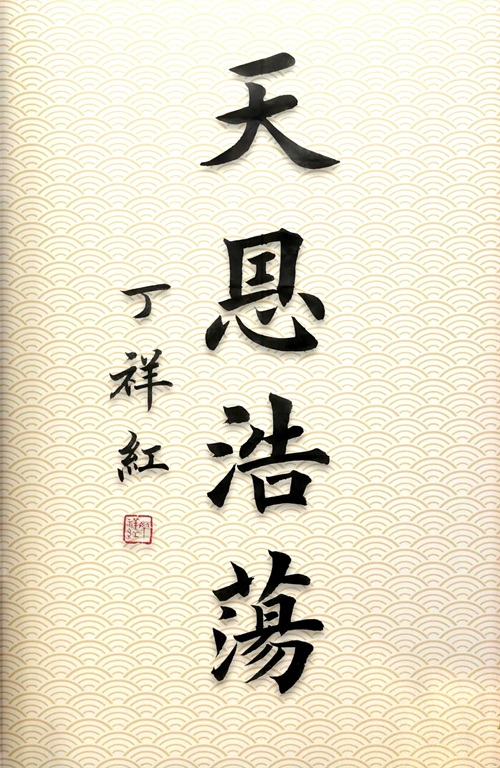 天恩浩蕩
丁祥紅